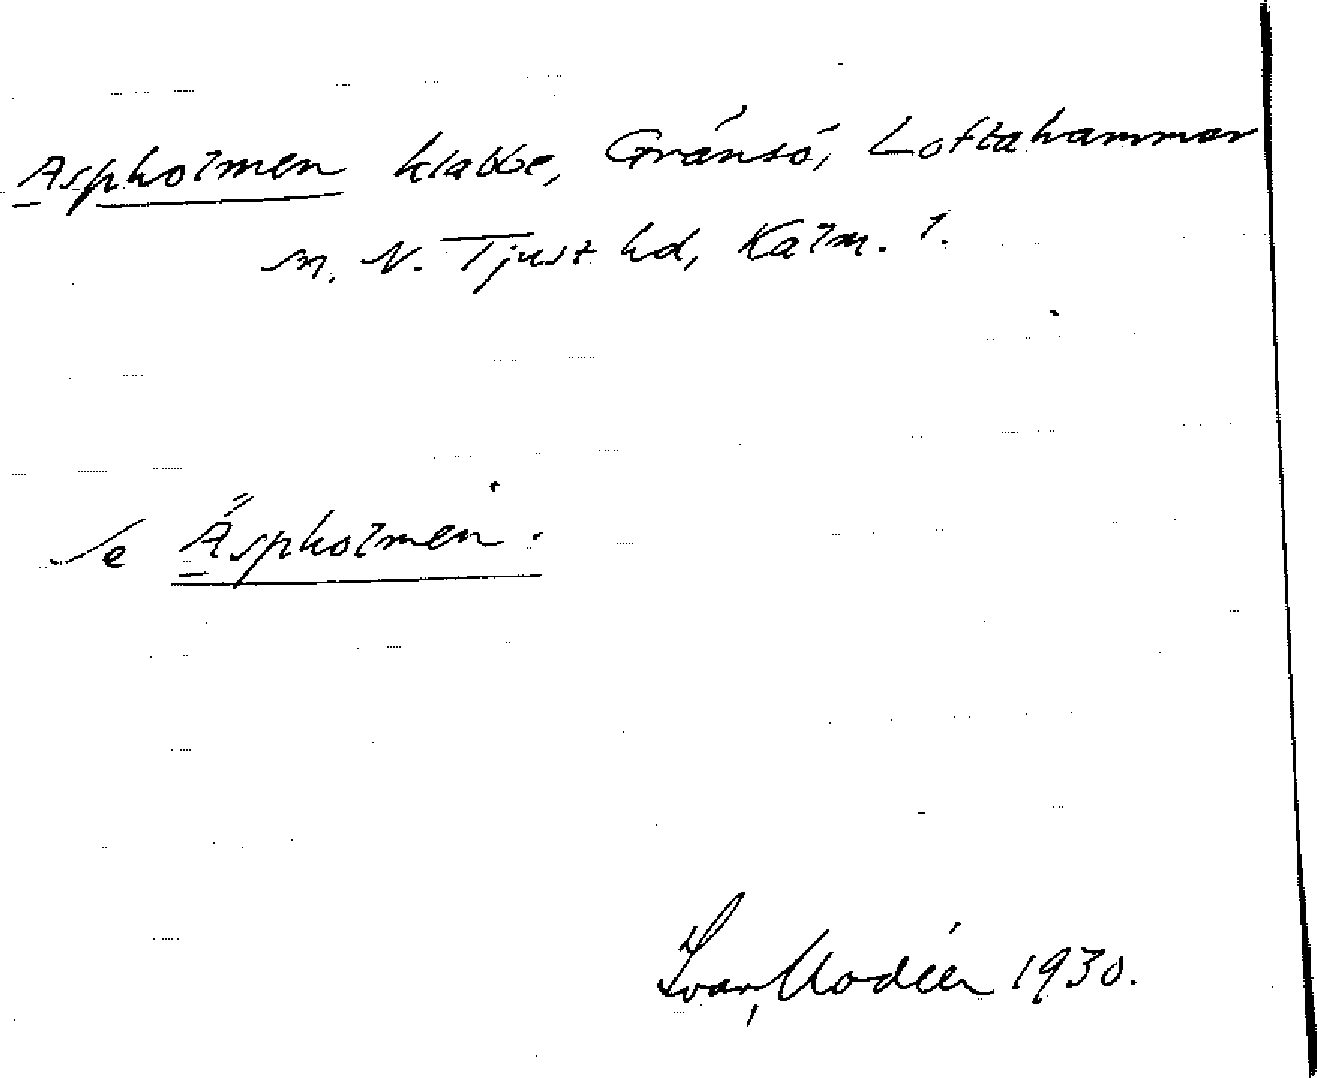 Aspholmen klabbe, Gränsö, Loftahammar
sn. N. Tjust hd, Kalm. l.
se Äspholmen.
Ivar Modéer 1930.